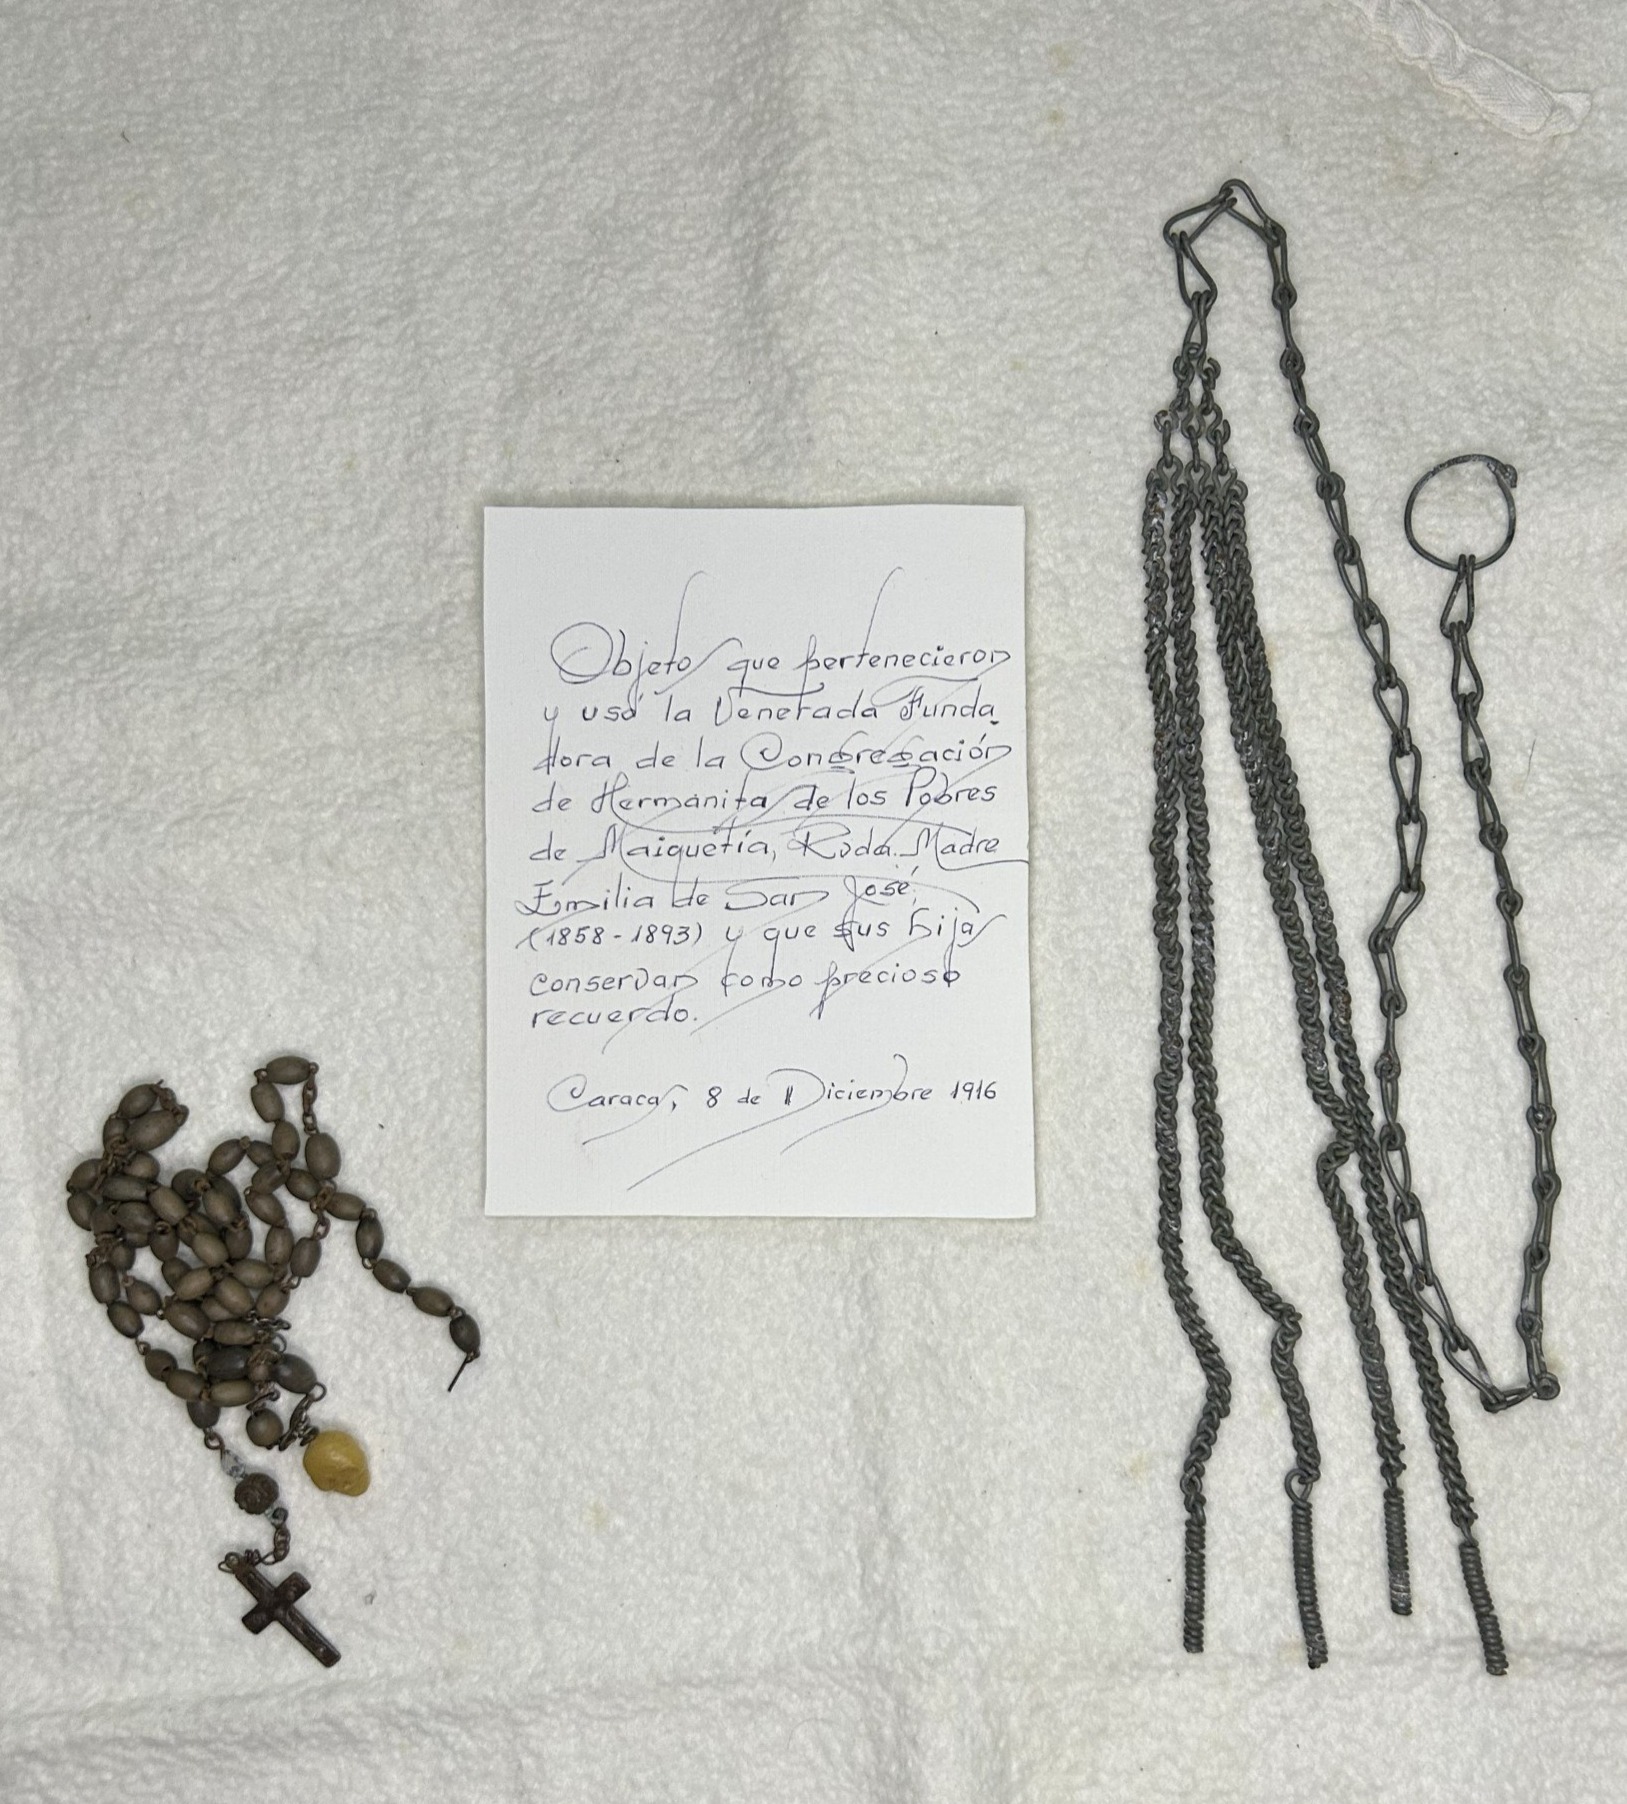 Objetos que pertenecieron
y usó la Venerada Funda
dora de la Congregación
de Hermanitas de los Pobres
de Maiquetía, Rvda. Madre
Emilia de San José,
(1858-1893) y que sus hijas
conservan como precioso
recuerdo.
Caracas, 8 de Diciembre 1916